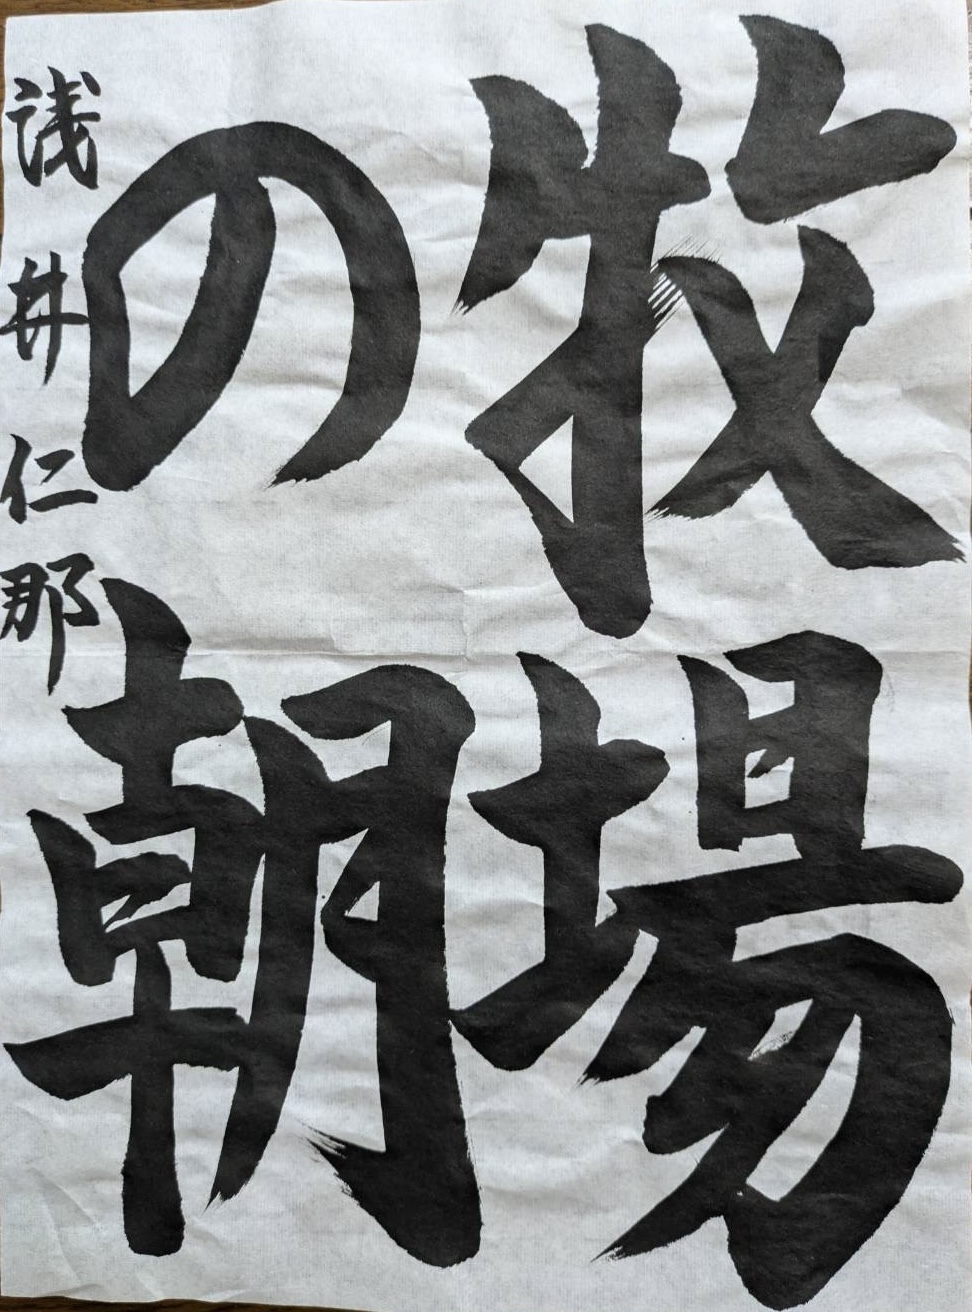 牧場
の朝
浅井仁那